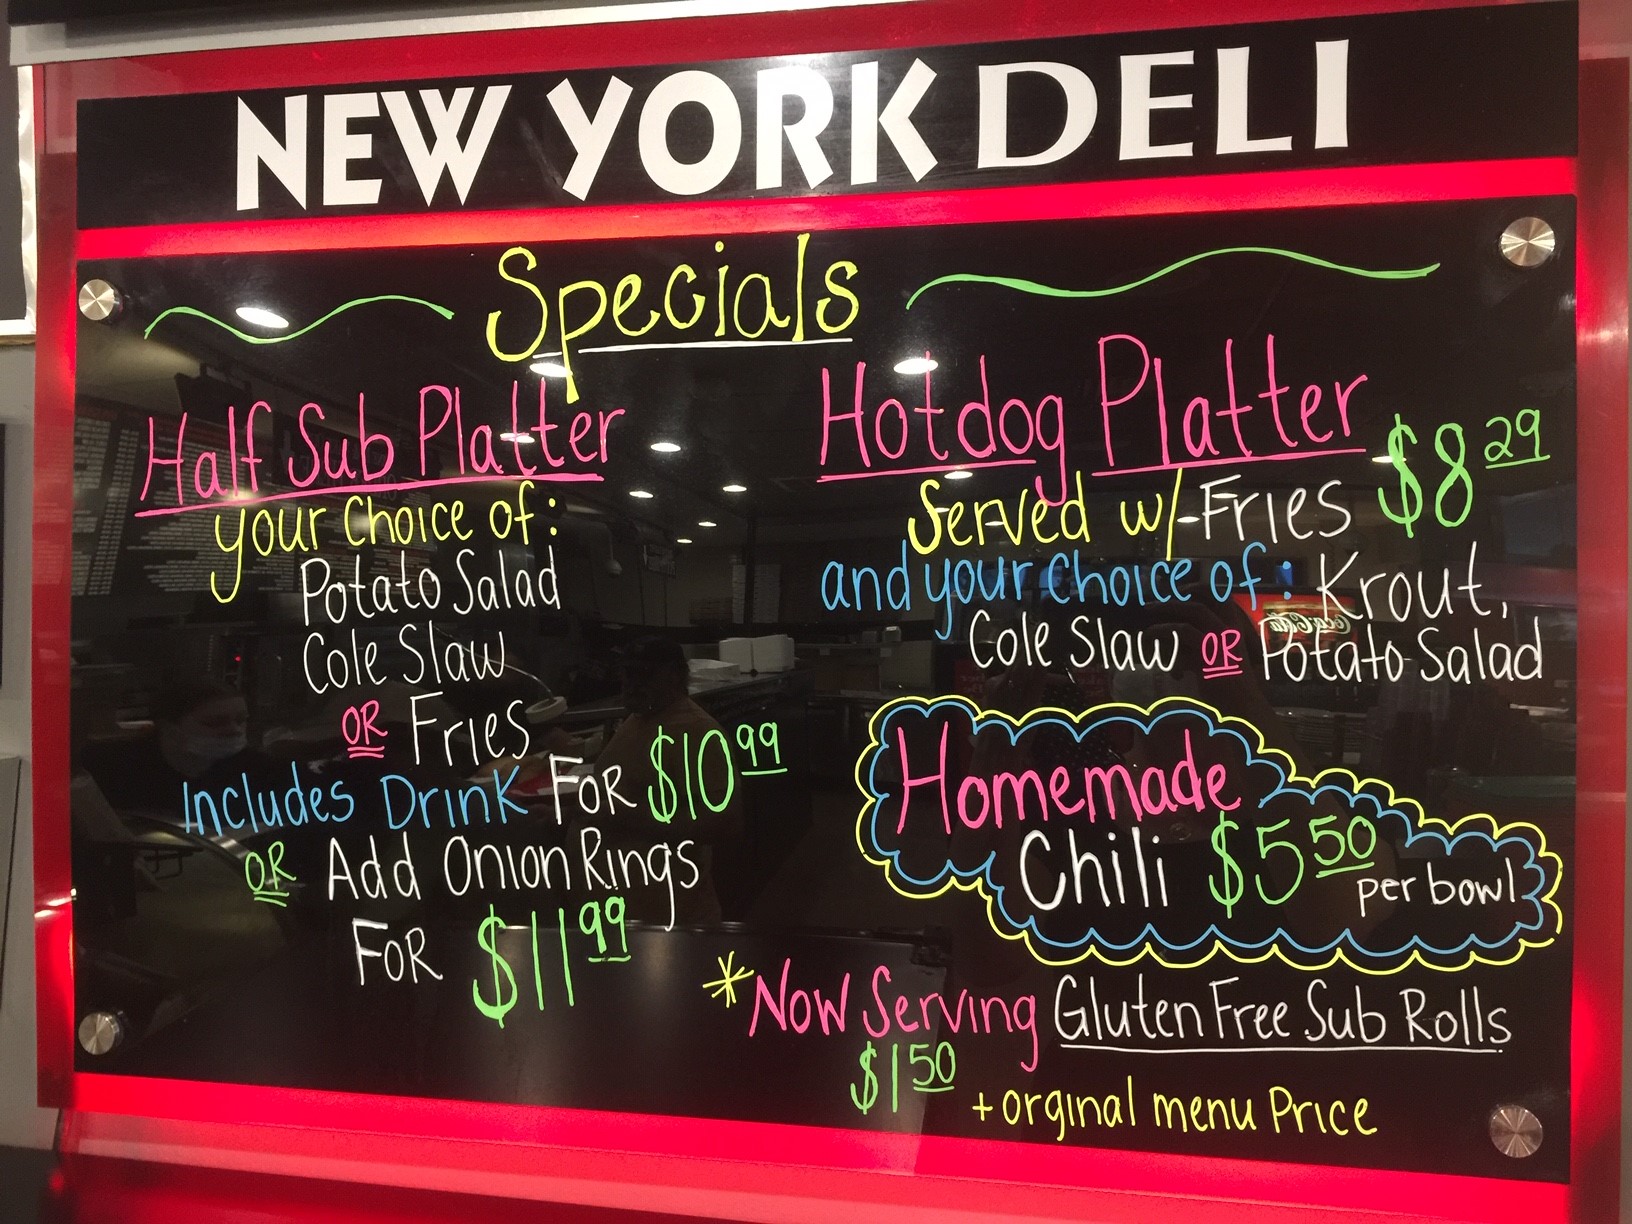 NEW YORK DELI
Specials
Half Sub Platter
your choice of:
Potato Salad
Cole Slaw
OR Fries
Includes Drink For $10.99
OR Add Onion Rings
For $11.99
Hotdog Platter
$8.29
Served w/ Fries
and your choice of: Krout,
Cole Slaw OR Potato Salad
Homemade
Chili $5.50 per bowl
*Now Serving Gluten Free Sub Rolls
$1.50 + orginal menu Price